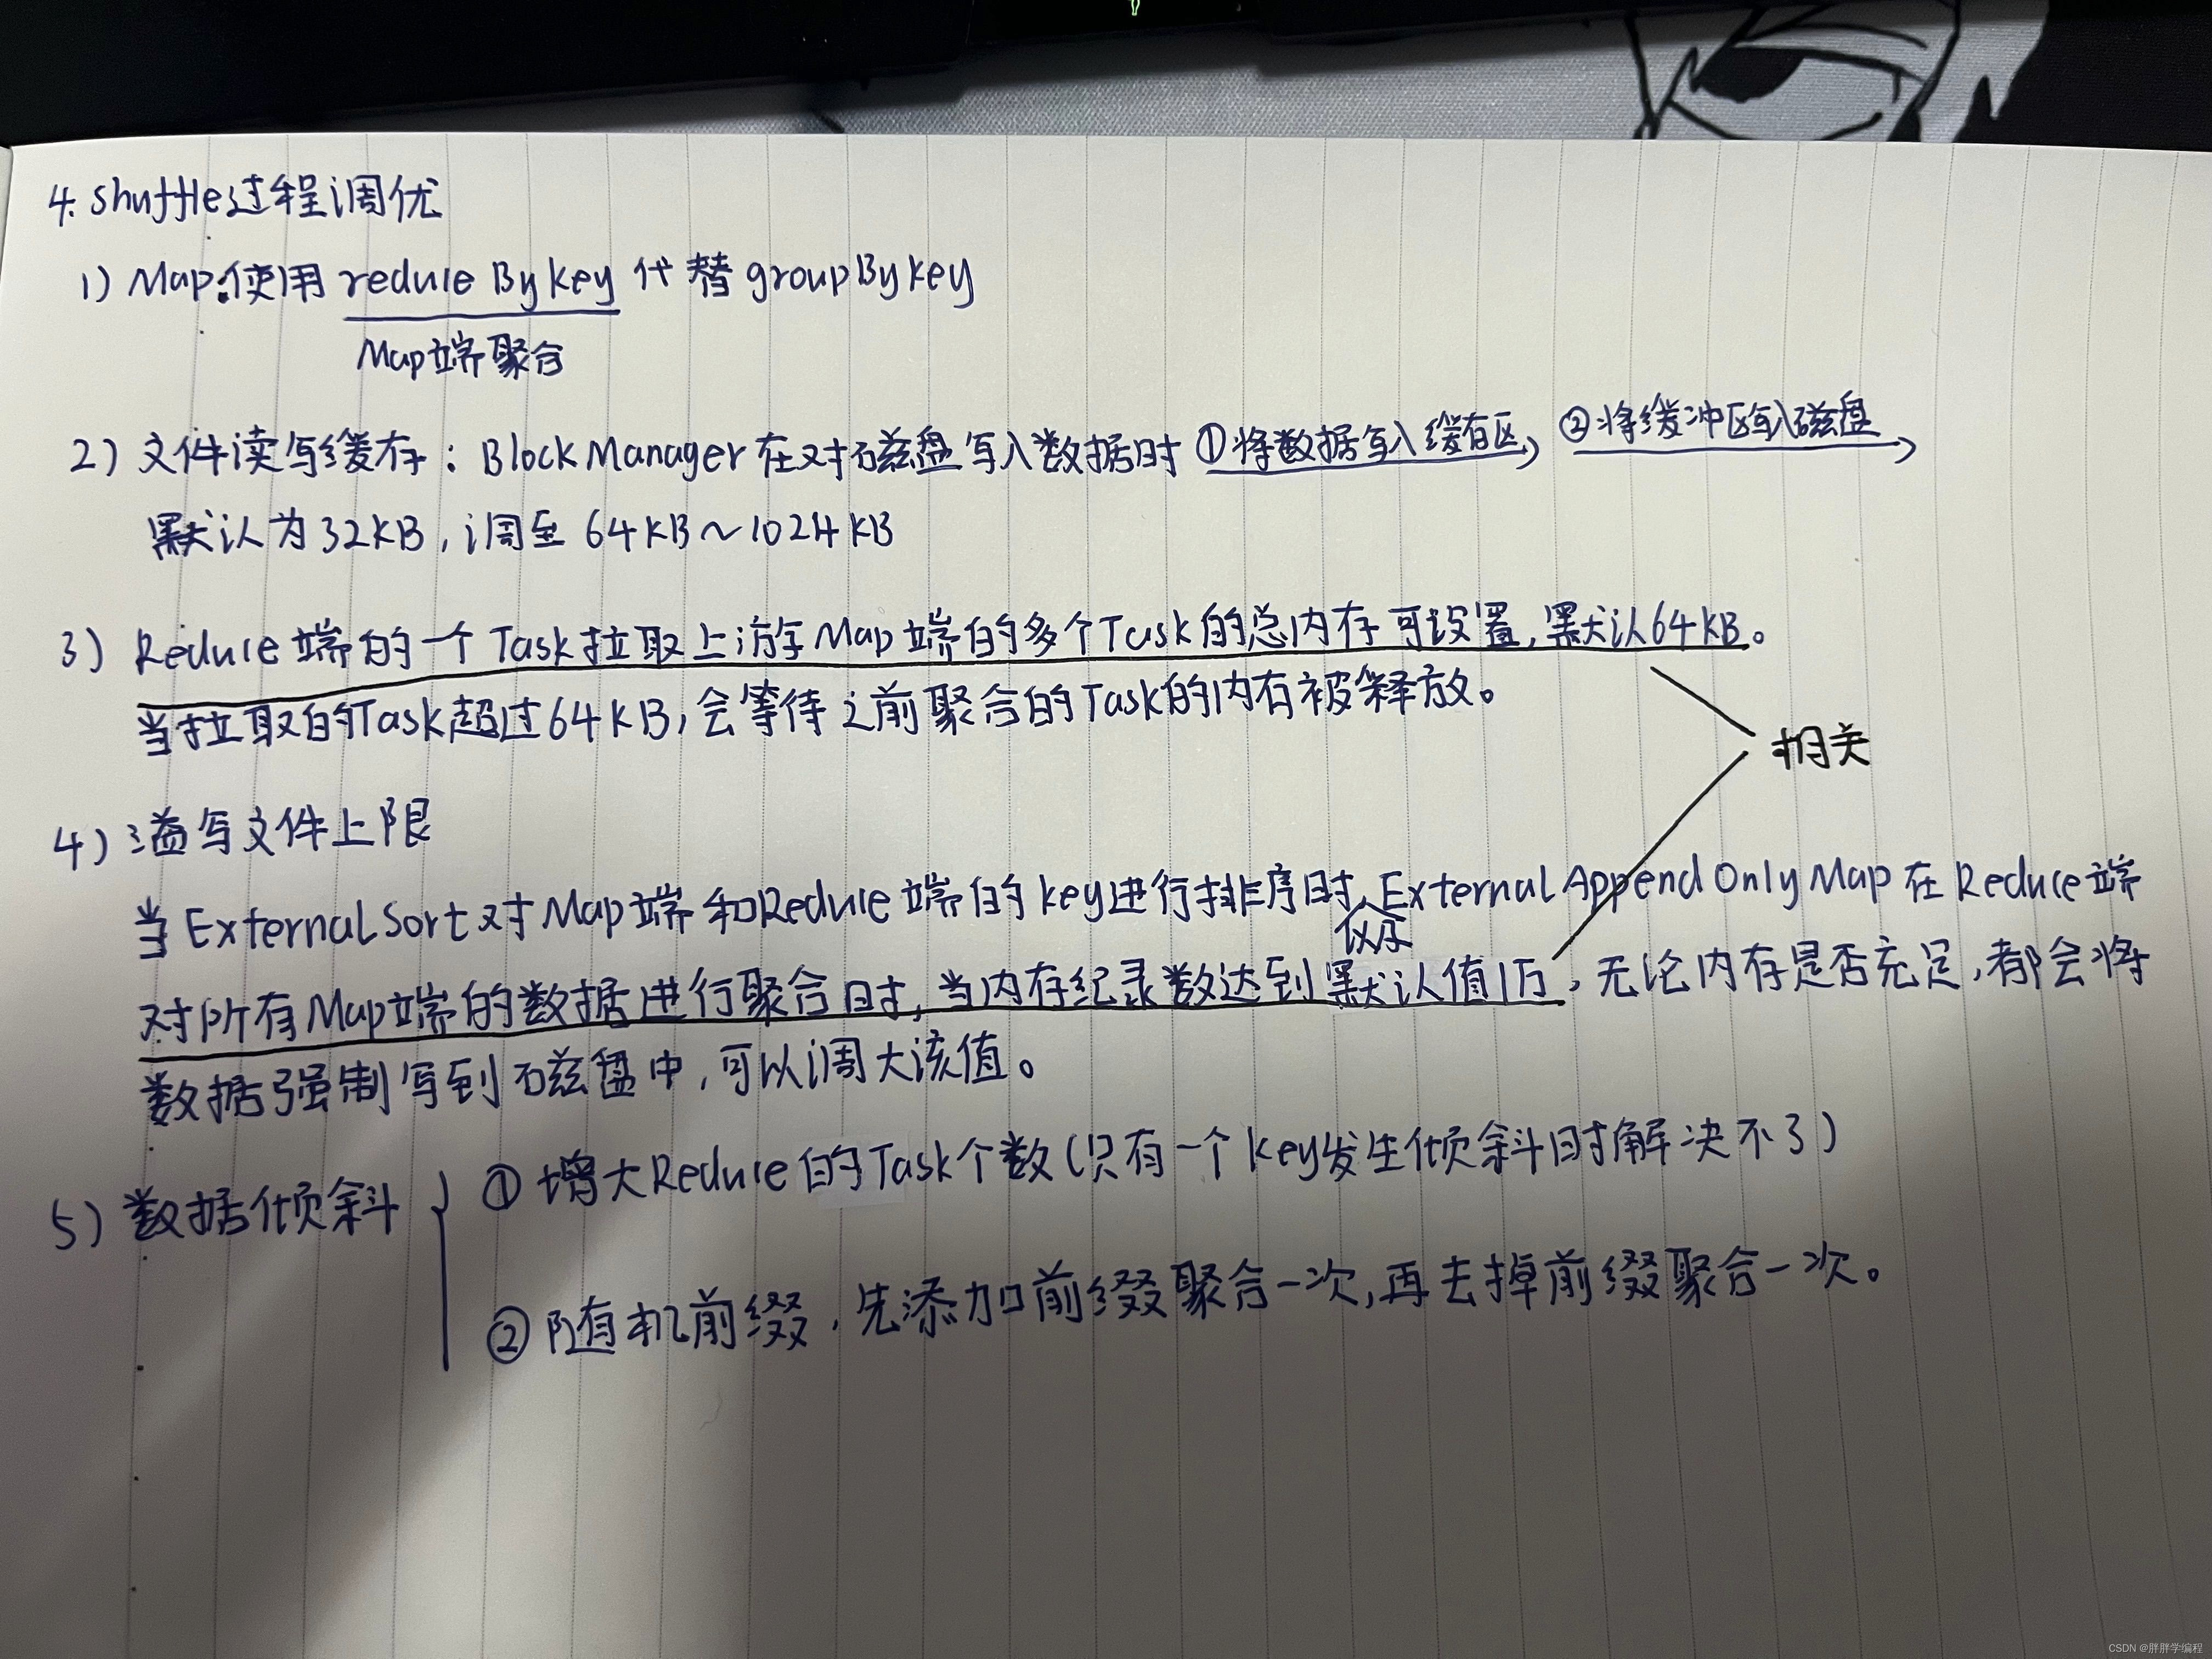 4. shuffle过程调优
1) Map:使用 reduceByKey 代替 groupByKey
Map端聚合
2) 文件读写缓存: BlockManager在对磁盘写入数据时 ①将数据写入缓存区 ②将缓冲区写入磁盘
默认为32KB,调至 64KB~1024KB
3) Reduce端的一个Task拉取上游Map端的多个Task的总内存可设置,默认64KB。
当拉取的Task超过64KB,会等待之前聚合的Task的内存被释放。
相关
4) 溢写文件上限
当 ExternalSort 对 Map端和Reduce端的key进行排序时 ExternalAppendOnlyMap 在 Reduce端
对所有Map端的数据进行聚合时,当内存纪录数达到默认值1万,无论内存是否充足,都会将
数据强制写到磁盘中,可以调大该值。
5) 数据倾斜
①增大Reduce的Task个数(只有一个key发生倾斜时解决不了)
②随机前缀,先添加前缀聚合一次,再去掉前缀聚合一次。
CSDN @胖胖学编程